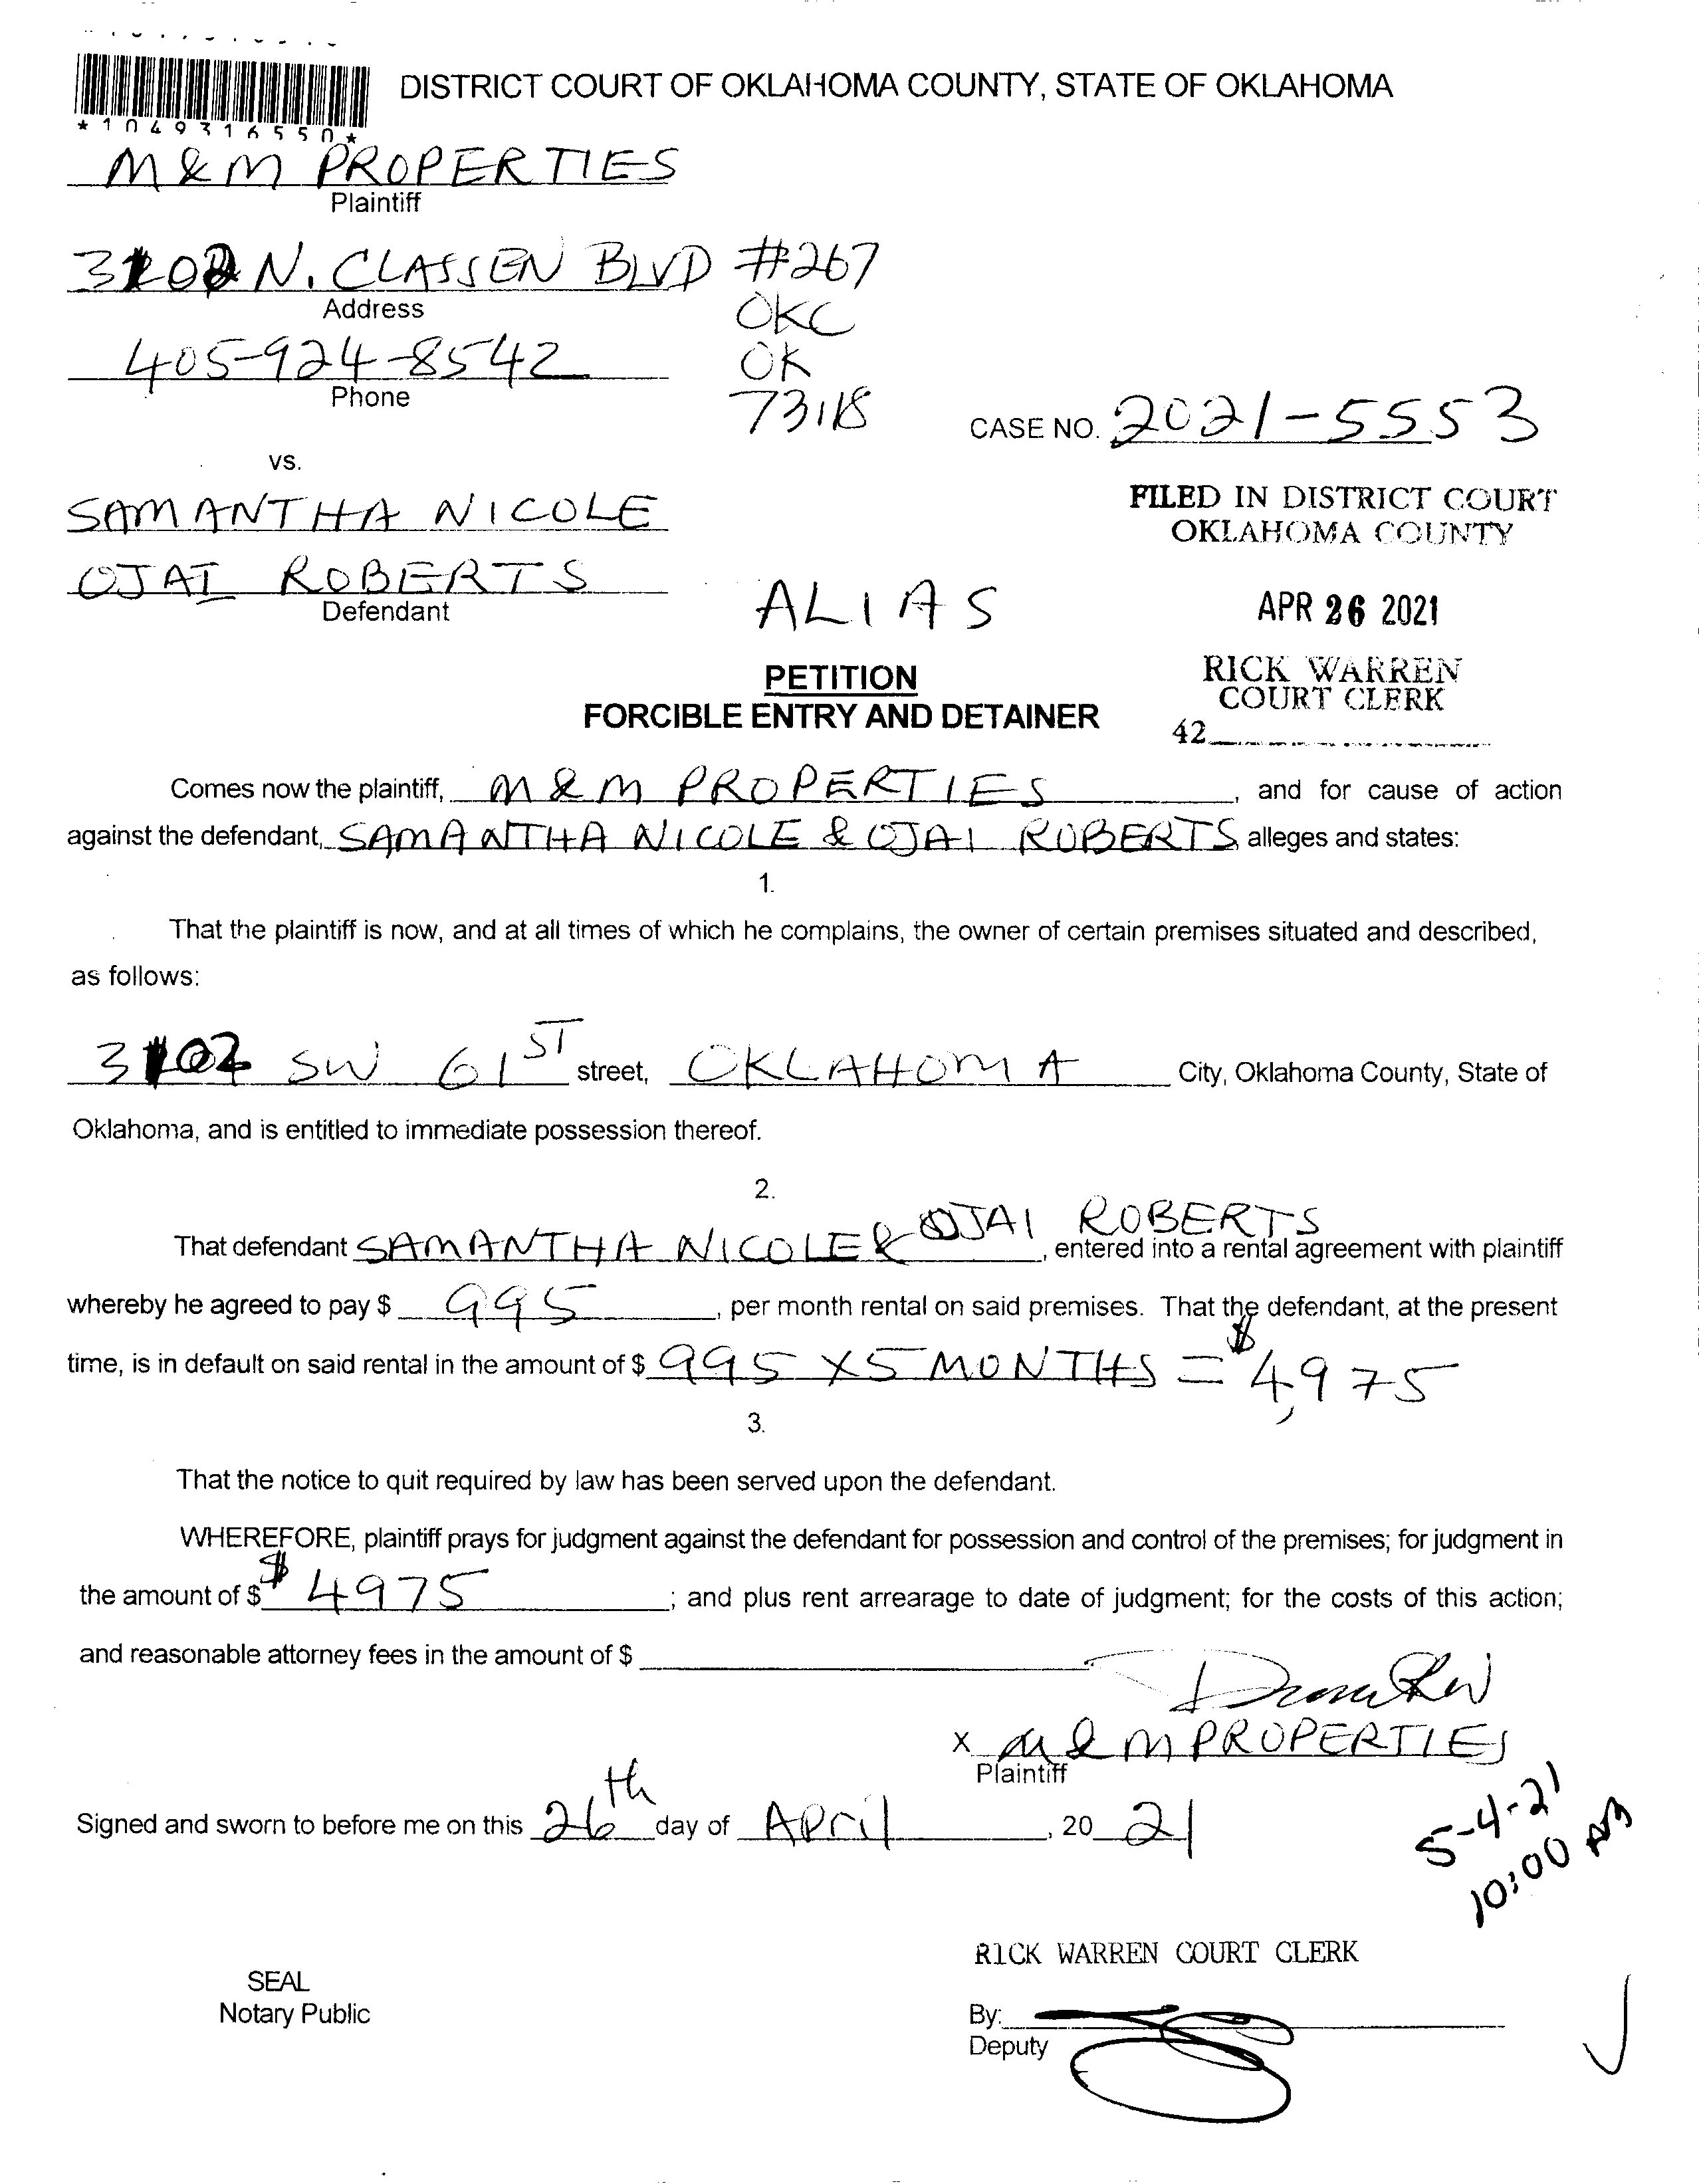 DISTRICT COURT OF OKLAHOMA COUNTY, STATE OF OKLAHOMA
*1049316550*
M & M PROPERTIES
Plaintiff
3102 N. CLASSEN BLVD #267
Address
OKC
405-924-8542
OK
Phone
73118
CASE NO. 2021-5553
vs.
SAMANTHA NICOLE
FILED IN DISTRICT COURT
OKLAHOMA COUNTY
OJAI ROBERTS
Defendant
ALIAS
APR 26 2021
PETITION
FORCIBLE ENTRY AND DETAINER
RICK WARREN
COURT CLERK
42
Comes now the plaintiff, M & M PROPERTIES, and for cause of action
against the defendant, SAMANTHA NICOLE & OJAI ROBERTS alleges and states:
1.
That the plaintiff is now, and at all times of which he complains, the owner of certain premises situated and described,
as follows:
3102 SW 61ST street, OKLAHOMA City, Oklahoma County, State of
Oklahoma, and is entitled to immediate possession thereof.
2.
That defendant SAMANTHA NICOLE & OJAI ROBERTS, entered into a rental agreement with plaintiff
whereby he agreed to pay $ 995, per month rental on said premises. That the defendant, at the present
time, is in default on said rental in the amount of $ 995 X5 MONTHS = $4,975
3.
That the notice to quit required by law has been served upon the defendant.
WHEREFORE, plaintiff prays for judgment against the defendant for possession and control of the premises; for judgment in
the amount of $ $4975; and plus rent arrearage to date of judgment; for the costs of this action;
and reasonable attorney fees in the amount of $
X M & M PROPERTIES
Plaintiff
Signed and sworn to before me on this 26th day of APril, 20 21
5-4-21
10:00 AM
RICK WARREN COURT CLERK
SEAL
Notary Public
By:
Deputy